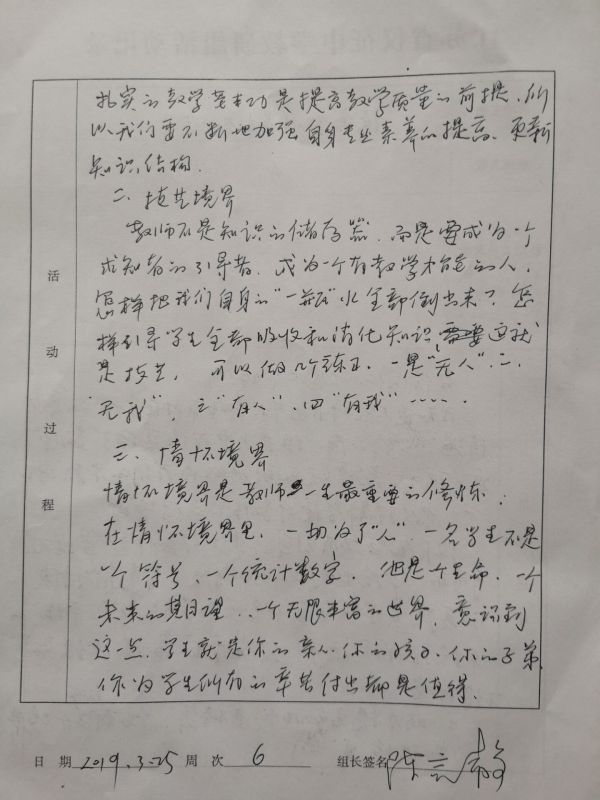 扎实的教学基本功是提高教学质量的前提，所
以我们要不断地加强自身专业素养的提高、更新
知识结构.
二、技艺境界
教师不是知识的储存器，而是要成为一个
求知者的引导者，成为一个有教学才能的人，
怎样把我们自身的"一瓶"水全部倒出来？怎
样引导学生全部吸收和消化知识，这就
是技艺，可以做几个练习，一是"无人"，二
"无我"，三"有人"、四"有我"……
三、情怀境界
情怀境界是教师一生最重要的修炼，
在情怀境界里，一切为了"人"，一名学生不是
一个符号、一个统计数字，他是个生命，一个
未来的期望、一个无限丰富的世界，意识到
这一点，学生就是你的亲人，你的孩子，你的子弟，
你为学生所有的辛苦付出都是值得.
活动过程
日期 2019.3.25 周次 6 组长签名